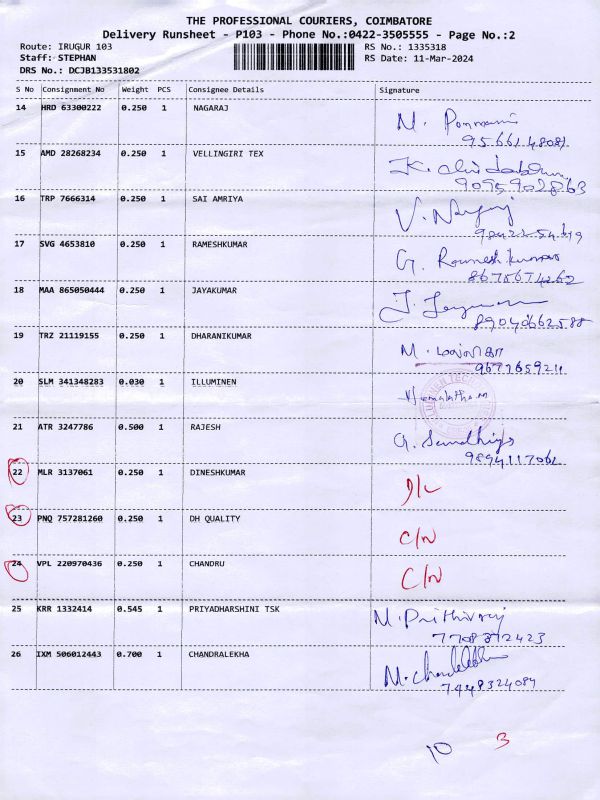 THE PROFESSIONAL COURIERS, COIMBATORE
Delivery Runsheet - P103 - Phone No.:0422-3505555 - Page No.:2
Route: IRUGUR 103 RS No.: 1335318
Staff: STEPHAN RS Date: 11-Mar-2024
DRS No.: DCJB133531802
S No Consignment No Weight PCS Consignee Details Signature
14 HRD 63300222 0.250 1 NAGARAJ M.
15 AMD 28268234 0.250 1 VELLINGIRI TEX K.
9095902863
16 TRP 7666314 0.250 1 SAI AMRIYA V.
17 SVG 4653810 0.250 1 RAMESHKUMAR G. Rameshkumar
8675674262
18 MAA 865050444 0.250 1 JAYAKUMAR J.
89040662588
19 TRZ 21119155 0.250 1 DHARANIKUMAR M.
9677659211
20 SLM 341348283 0.030 1 ILLUMINEN
21 ATR 3247786 0.500 1 RAJESH G. Sandhiya
9894117062
22 MLR 3137061 0.250 1 DINESHKUMAR D/L
23 PNQ 757281260 0.250 1 DH QUALITY C/N
24 VPL 220970436 0.250 1 CHANDRU C/N
25 KRR 1332414 0.545 1 PRIYADHARSHINI TSK M. Prithivraj
7708372423
26 IXM 506012443 0.700 1 CHANDRALEKHA M. Chandralekha
7448324084
10 3